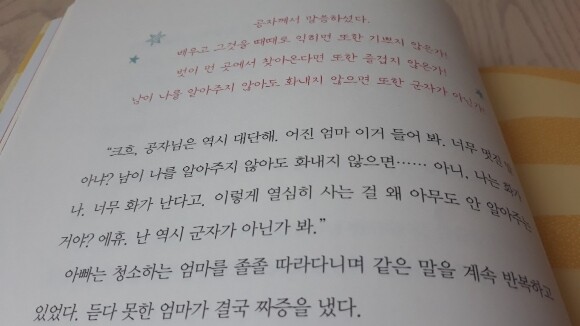 공자께서 말씀하셨다.
배우고 그것을 때때로 익히면 또한 기쁘지 않은가!
벗이 먼 곳에서 찾아온다면 또한 즐겁지 않은가!
남이 나를 알아주지 않아도 화내지 않으면 또한 군자가 아닌가!
“크흐, 공자님은 역시 대단해. 어진 엄마 이거 들어 봐. 너무 멋진
아냐? 남이 나를 알아주지 않아도 화내지 않으면…… 아니, 나는 화가
나. 너무 화가 난다고. 이렇게 열심히 사는 걸 왜 아무도 안 알아주는
거야? 에휴. 난 역시 군자가 아닌가 봐.”
아빠는 청소하는 엄마를 졸졸 따라다니며 같은 말을 계속 반복하고
있었다. 듣다 못한 엄마가 결국 짜증을 냈다.